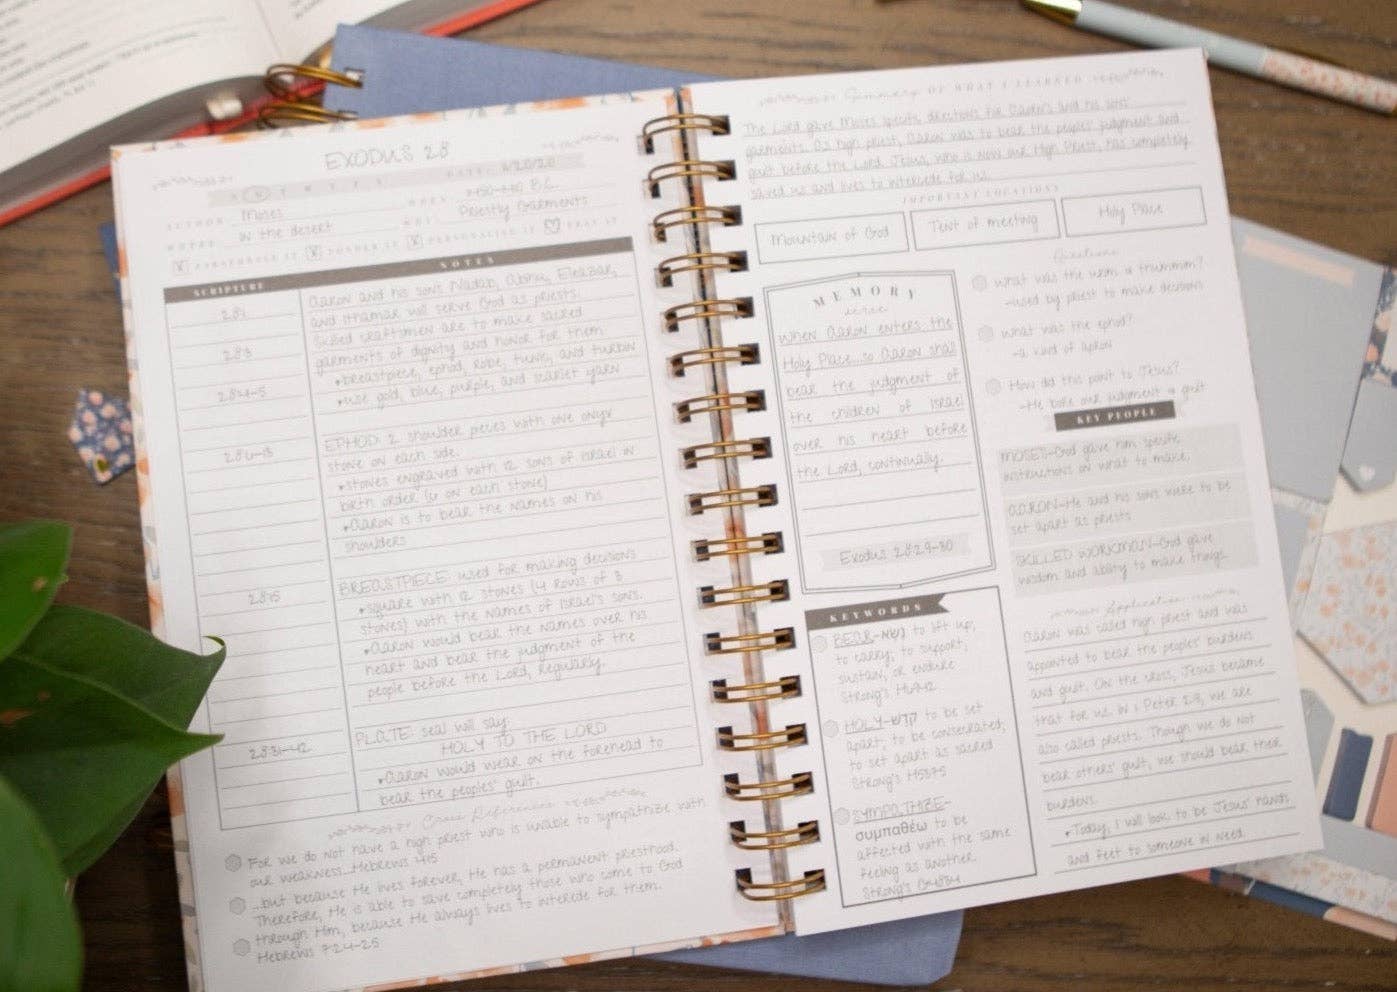 EXODUS 28
S M T W T F S DATE: 8/20/20
AUTHOR: Moses WHEN:
WHERE: in the desert WHY: Priestly Garments
PARAPHRASE IT PONDER IT PERSONALIZE IT PRAY IT
SCRIPTURE NOTES
28:1 Aaron and his sons Nadab, Abihu, Eleazar,
and Ithamar will serve God as priests.
28:3 Skilled craftsmen are to make sacred
garments of dignity and honor for them.
28:4-5 •breastpiece, ephod, robe, tunic, and turbin
•use gold, blue, purple, and scarlet yarn
28:6-13 EPHOD: 2 shoulder pieces with one onyx
stone on each side.
•stones engraved with 12 sons of Israel in
birth order (6 on each stone)
•Aaron is to bear the names on his
shoulders
28:15 BREASTPIECE: used for making decisions
•square with 12 stones (4 rows of 3
stones) with the names of Israel's sons.
•Aaron would bear the names over his
heart and bear the judgment of the
people before the Lord, regularly.
28:31-42 PLATE: seal will say:
HOLY TO THE LORD
•Aaron would wear on the forehead to
bear the peoples' guilt.
Cross References
For we do not have a high priest who is unable to sympathize with
our weakness...Hebrews 4:15
...but because He lives forever, He has a permanent priesthood.
Therefore, He is able to save completely those who come to God
through Him, because He always lives to intercede for them.
Hebrews 7:24-25
Summary OF WHAT I LEARNED
The Lord gave Moses specific directions for Aaron's and his sons'
garments. As high priest, Aaron was to bear the peoples' judgment and
guilt before the Lord. Jesus, who is now our High Priest, has completely
saved us and lives to intercede for us.
IMPORTANT LOCATIONS
Mountain of God Tent of meeting Holy Place
MEMORY
verse
When Aaron enters the
Holy Place, so Aaron shall
bear the judgment of
the children of Israel
over his heart before
the Lord, continually.
Exodus 28:29-30
KEYWORDS
BEAR-נשא to lift up,
to carry, to support,
sustain, or endure
Strong's
HOLY-קדש to be set
apart, to be consecrated,
to set apart as sacred
Strong's
SYMPATHIZE-
συμπαθέω to be
affected with the same
feeling as another
Strong's
Questions
what was the urim & thummim?
-used by priest to make decisions
what was the ephod?
-a kind of apron
How did this point to Jesus?
-He bore our judgment & guilt
KEY PEOPLE
MOSES-God gave him specific
instructions on what to make.
AARON-He and his sons were to be
set apart as priests
SKILLED WORKMAN-God gave
wisdom and ability to make things
Application
Aaron was called high priest and was
appointed to bear the peoples' burdens
and guilt. On the cross, Jesus became
that for us. In 1 Peter 2:9, we are
also called priests. Though we do not
bear others' guilt, we should bear their
burdens.
•Today, I will look to be Jesus' hands
and feet to someone in need.